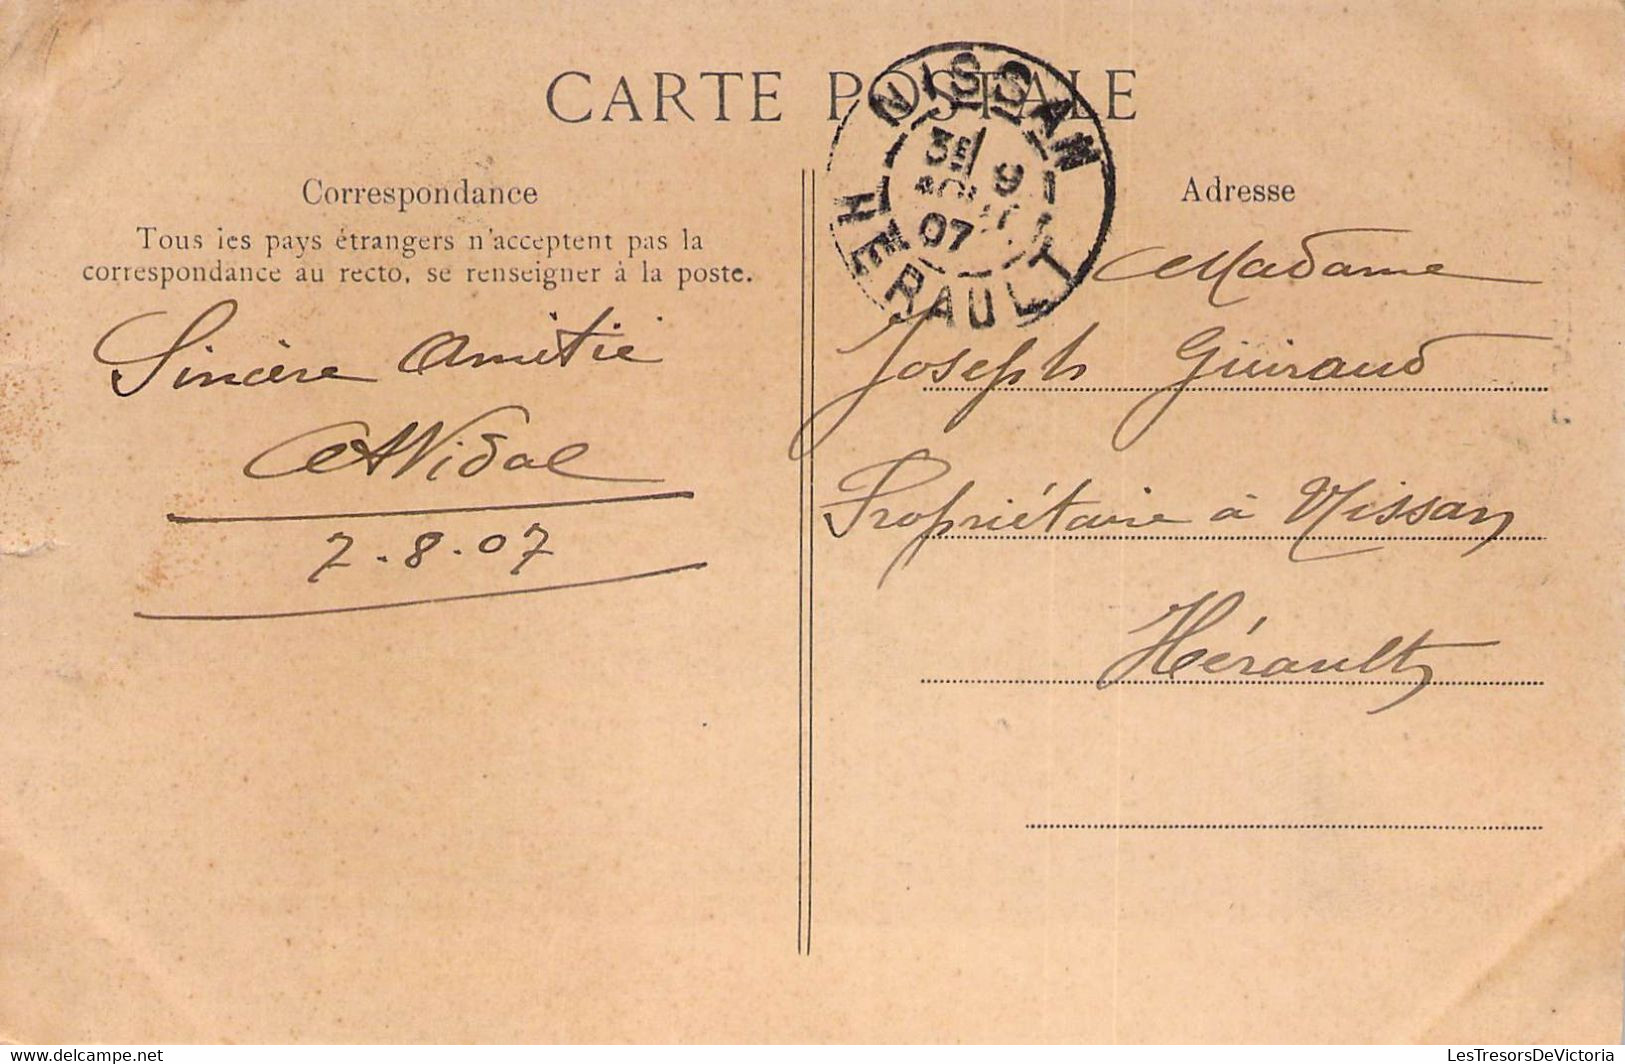 CARTE POSTALE
NISSAN
3E 9
AOUT
07
HERAULT
Correspondance
Tous les pays étrangers n'acceptent pas la
correspondance au recto, se renseigner à la poste.
Sincère Amitié
Vidal
7.8.07
Adresse
Madame
Joseph Guiraud
Propriétaire à Nissan
Hérault
LesTresorsDeVictoria - Delcampe.net
LesTresorsDeVictoria